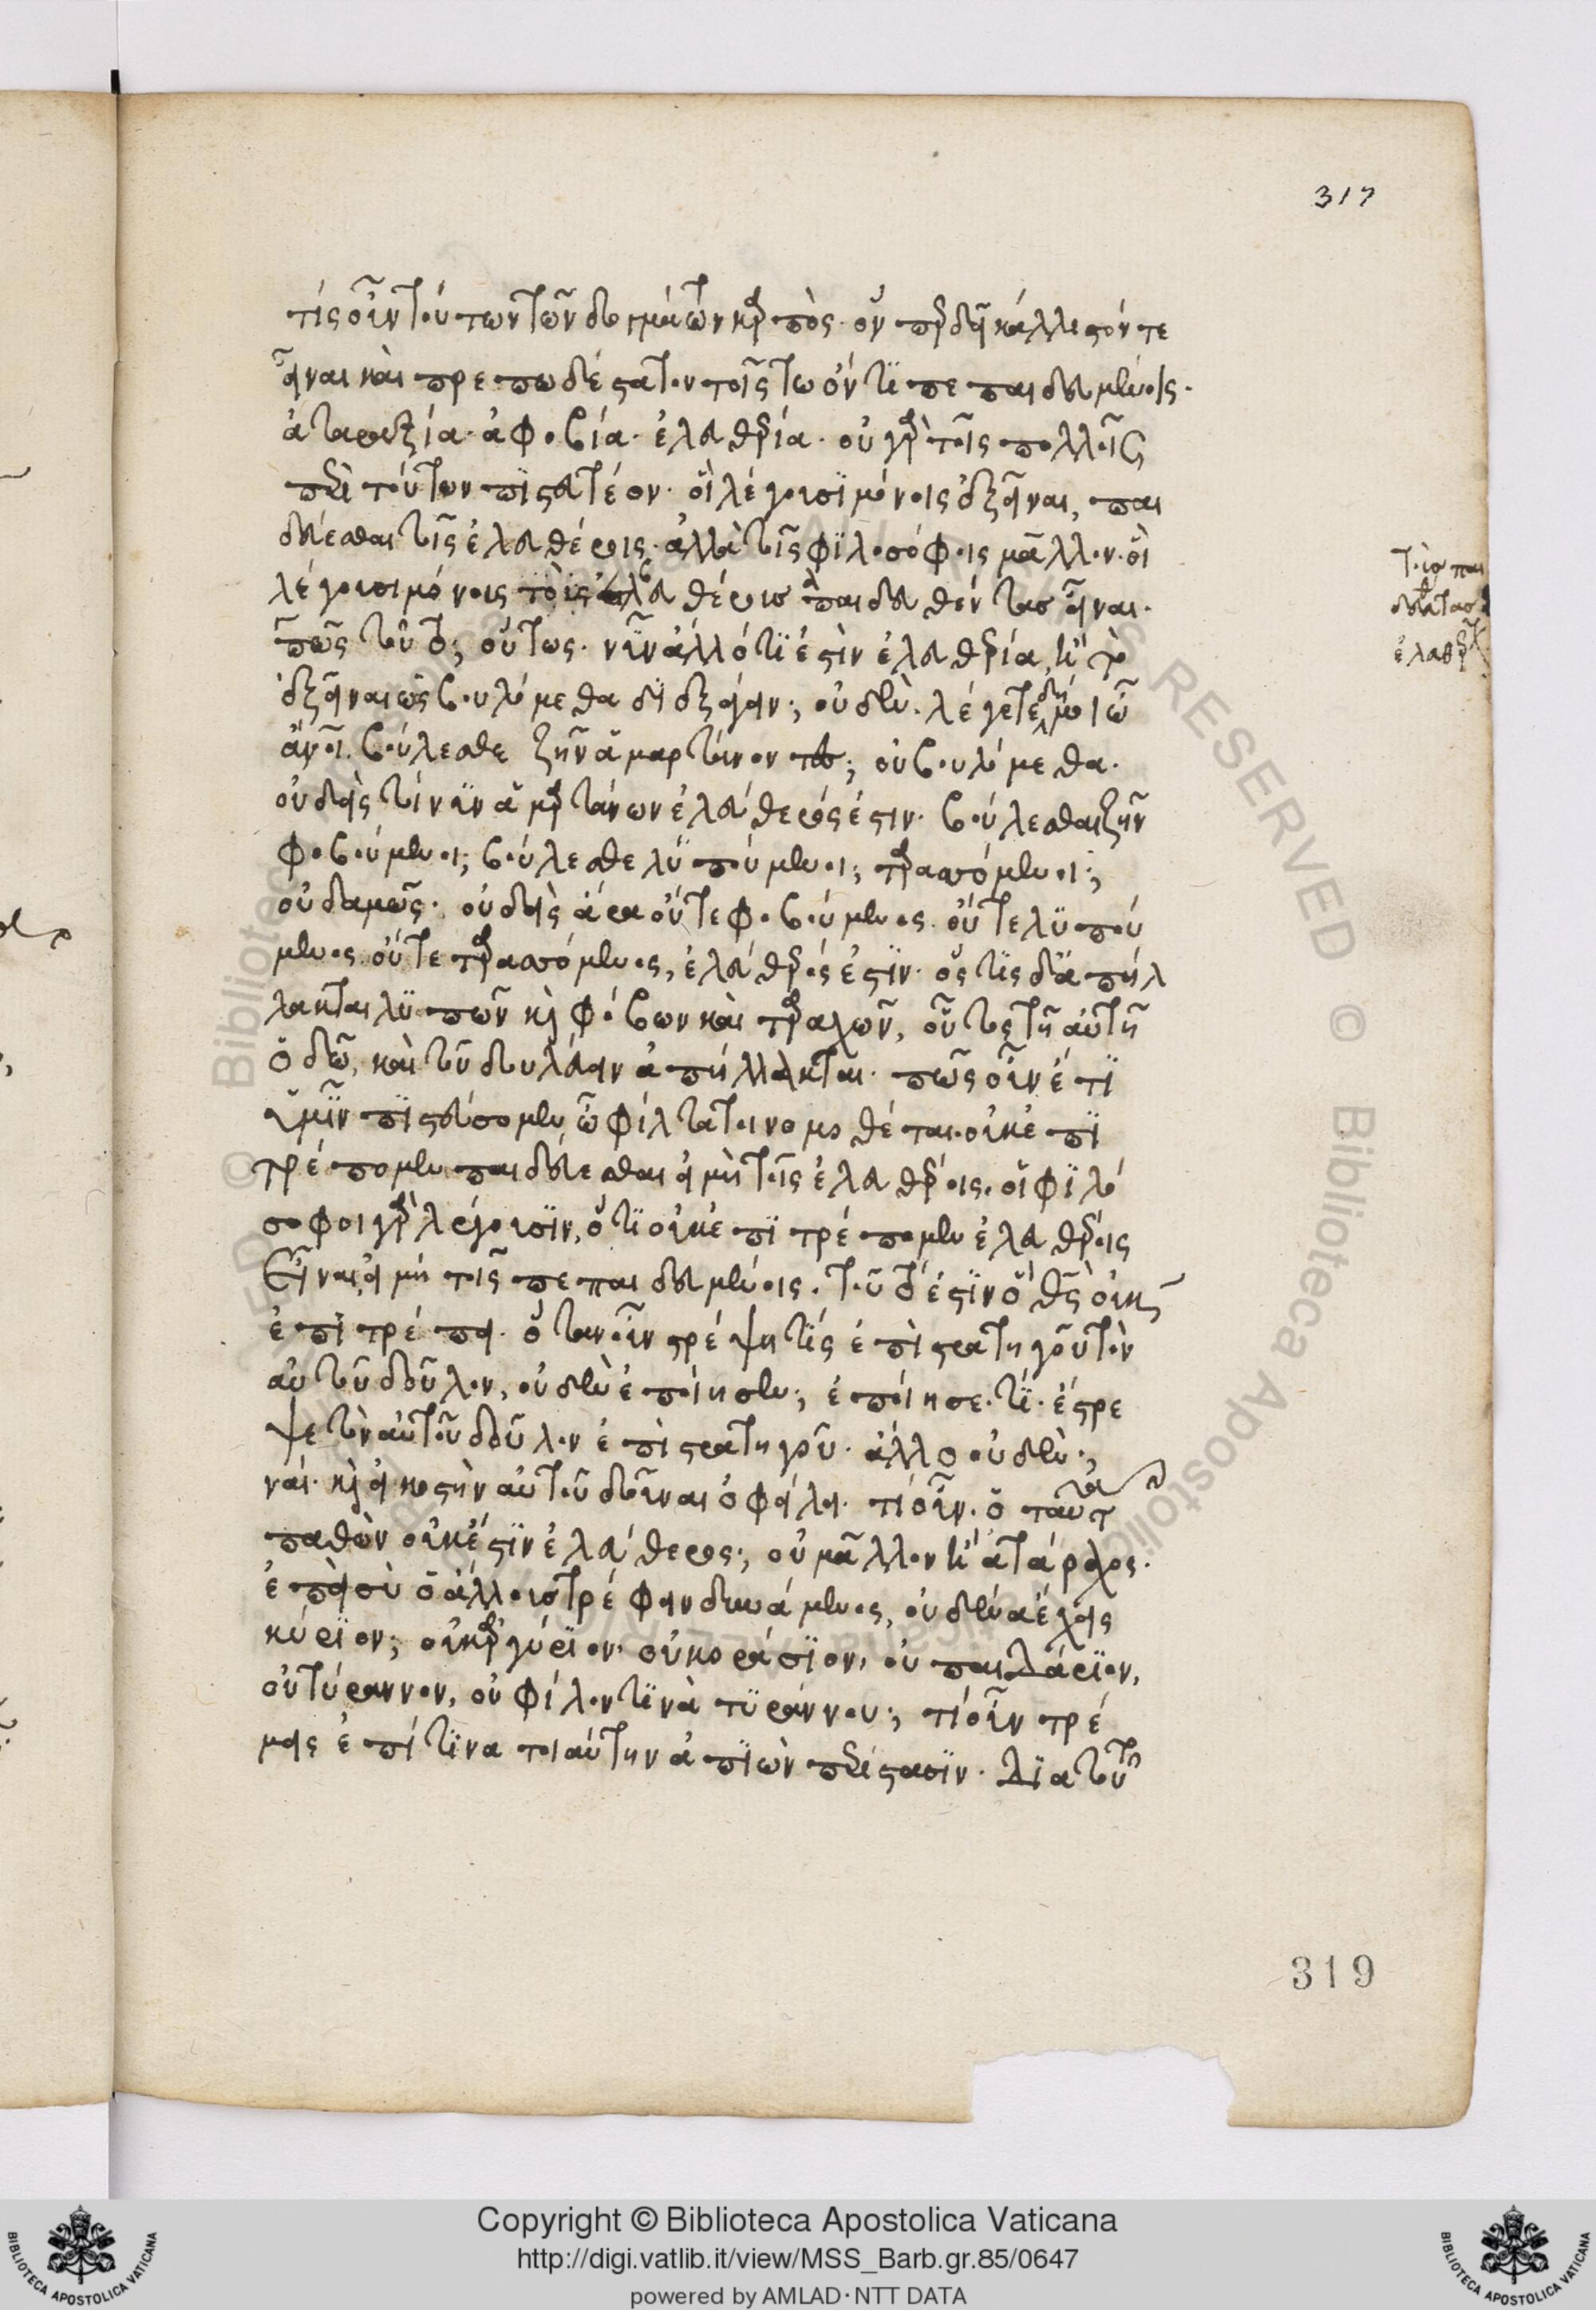 317
τίς οὖν τούτων τῶν δογμάτων καρπός· ὃν περ δεῖ κάλλιστόν τε
εἶναι καὶ πρεπωδέστατον τοῖς τῶ ὄντι πεπαιδευμένοις·
ἀταραξία· ἀφοβία· ἐλευθερία· οὐ γὰρ τοῖς πολλοῖς
περὶ τούτων πιστευτέον· οἳ λέγουσι μόνοις ἐξεῖναι, παι
δεύεσθαι τοῖς ἐλευθέροις· ἀλλὰ τοῖς φιλοσόφοις μᾶλλον· οἳ
λέγουσι μόνους τοὺς ἐλευθέρους παιδευθέντας εἶναι·
πῶς τοῦτο; οὕτως· νῦν ἄλλό τί ἐστιν ἐλευθερία, ἢ τὸ
ἐξεῖναι ὡς βουλόμεθα διεξάγειν; οὐδέν· λέγετε δή μοι ὦ
ἄνθρωποι· βούλεσθε ζῆν ἁμαρτάνοντες; οὐ βουλόμεθα·
οὐδεὶς τοίνυν ἁμαρτάνων ἐλεύθερός ἐστιν· βούλεσθαι ζῆν
φοβούμενοι; βούλεσθε λυπούμενοι; ταρασσόμενοι;
οὐδαμῶς· οὐδεὶς ἄρα οὔτε φοβούμενος· οὔτε λυπού
μενος οὔτε ταρασσόμενος, ἐλεύθερός ἐστιν· ὅς τις δ' ἀπήλ
λακται λυπῶν καὶ φόβων καὶ ταραχῶν, οὗτος τῇ αὐτῇ
ὁδῶ, καὶ τοῦ δουλεύειν ἀπήλλακται· πῶς οὖν ἔτι
ὑμῖν πιστεύσομεν, ὦ φίλτατοι νομοθέται· οὐκ ἐπι
τρέπομεν παιδεύεσθαι εἰ μὴ τοῖς ἐλευθέροις. οἱ φιλό
σοφοι γὰρ λέγουσιν, ὅτι οὐκ ἐπιτρέπομεν ἐλευθέροις
εἶναι, εἰ μὴ τοῖς πεπαιδευμένοις. τοῦτό ἐστιν ὁ θεὸς οὐκ
ἐπιτρέπει· ὅταν οὖν στρέψη τίς ἐπὶ στρατηγοῦ τὸν
αὐτοῦ δοῦλον, οὐδὲν ἐποίησεν; ἐποίησε. τί. ἔστρε
ψε τὸν αὐτοῦ δοῦλον ἐπὶ στρατηγοῦ. ἄλλο οὐδέν;
ναί· καὶ εἰκοστὴν αὐτοῦ δοῦναι ὀφείλει. τί οὖν. ὁ ταῦτα
παθὼν οὐκ ἔστιν ἐλεύθερος; οὐ μᾶλλον ἢ ἀτάραχος.
ἐπεὶ σὺ ὁ ἄλλους τρέφειν δυνάμενος, οὐδένα ἔχεις
κύριον; οὐκ ἀργύριον· οὐ κοράσιον, οὐ παιδάριον,
οὐ τύραννον, οὐ φίλον τινὰ τυράννου; τί οὖν τρέ
μεις ἐπί τινα τοιαύτην ἀπιὼν περίστασιν. διὰ τοῦτο
τοὺς παι
δευθέντας
ἐλευθέρους
319
Copyright © Biblioteca Apostolica Vaticana
http://digi.vatlib.it/view/MSS_Barb.gr.85/0647
powered by AMLAD·NTT DATA